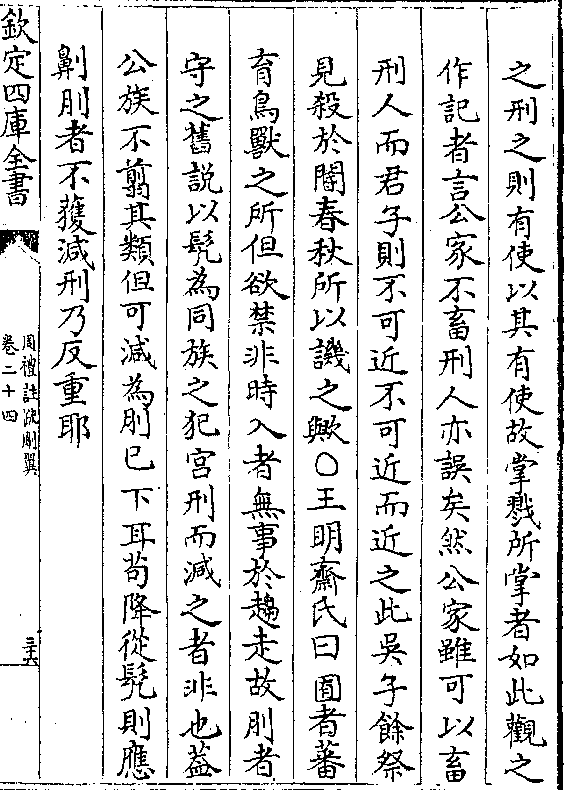 之刑之則有使以其有使故掌戮所掌者如此觀之
作記者言公家不畜刑人亦誤矣然公家雖可以畜
刑人而君子則不可近不可近而近之此吳子餘祭
見殺於閽春秋所以譏之歟○王明齋氏曰囿者蕃
育鳥獸之所但欲禁非時入者無事於趨走故刖者
守之舊說以髠為同族之犯宮刑而減之者非也葢
公族不翦其類但可減為刖已下耳茍降從髠則應
劓刖者不獲減刑乃反重耶
欽定四庫全書
周禮註疏刪翼
卷二十四
三十六